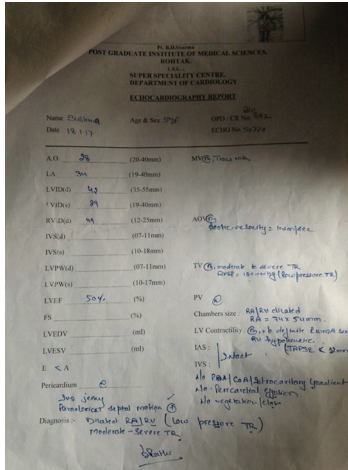 Pt. B.D.Sharma
POST GRADUATE INSTITUTE OF MEDICAL SCIENCES,
ROHTAK.
SUPER SPECIALITY CENTRE,
DEPARTMENT OF CARDIOLOGY
ECHOCARDIOGRAPHY REPORT
Name Age & Sex OPD / CR No
Date 18/1/17 ECHO No.
A.O. 28 (20-40mm) MV (N), Trace MR
LA 34 (19-40mm)
LVID(d) 42 (35-55mm)
LVID(s) 29 (19-40mm)
RVID(d) 44 (12-25mm) AOV (N)
Aortic velocity =
IVS(d) (07-11mm)
IVS(s) (10-18mm)
LVPW(d) (07-11mm) TV (N), moderate to severe TR
LVPW(s) (10-17mm) (Low pressure TR)
LVEF 50% (%) PV (N)
FS (%) Chambers size : RA/RV dilated
RA = 74 x 54 mm
LVEDV (ml) LV Contractility (N), no definite RWMA seen
RV hypokinetic
LVESV (ml) IAS : Intact (TAPSE <
E < A IVS :
No PDA/CoA/Intracardiac gradient
Pericardium (N) No Pericardial effusion
IVS jerky No vegetation/clot
Paradoxical septal motion (+)
Diagnosis :- Dilated RA/RV (Low pressure TR)
Moderate - Severe TR